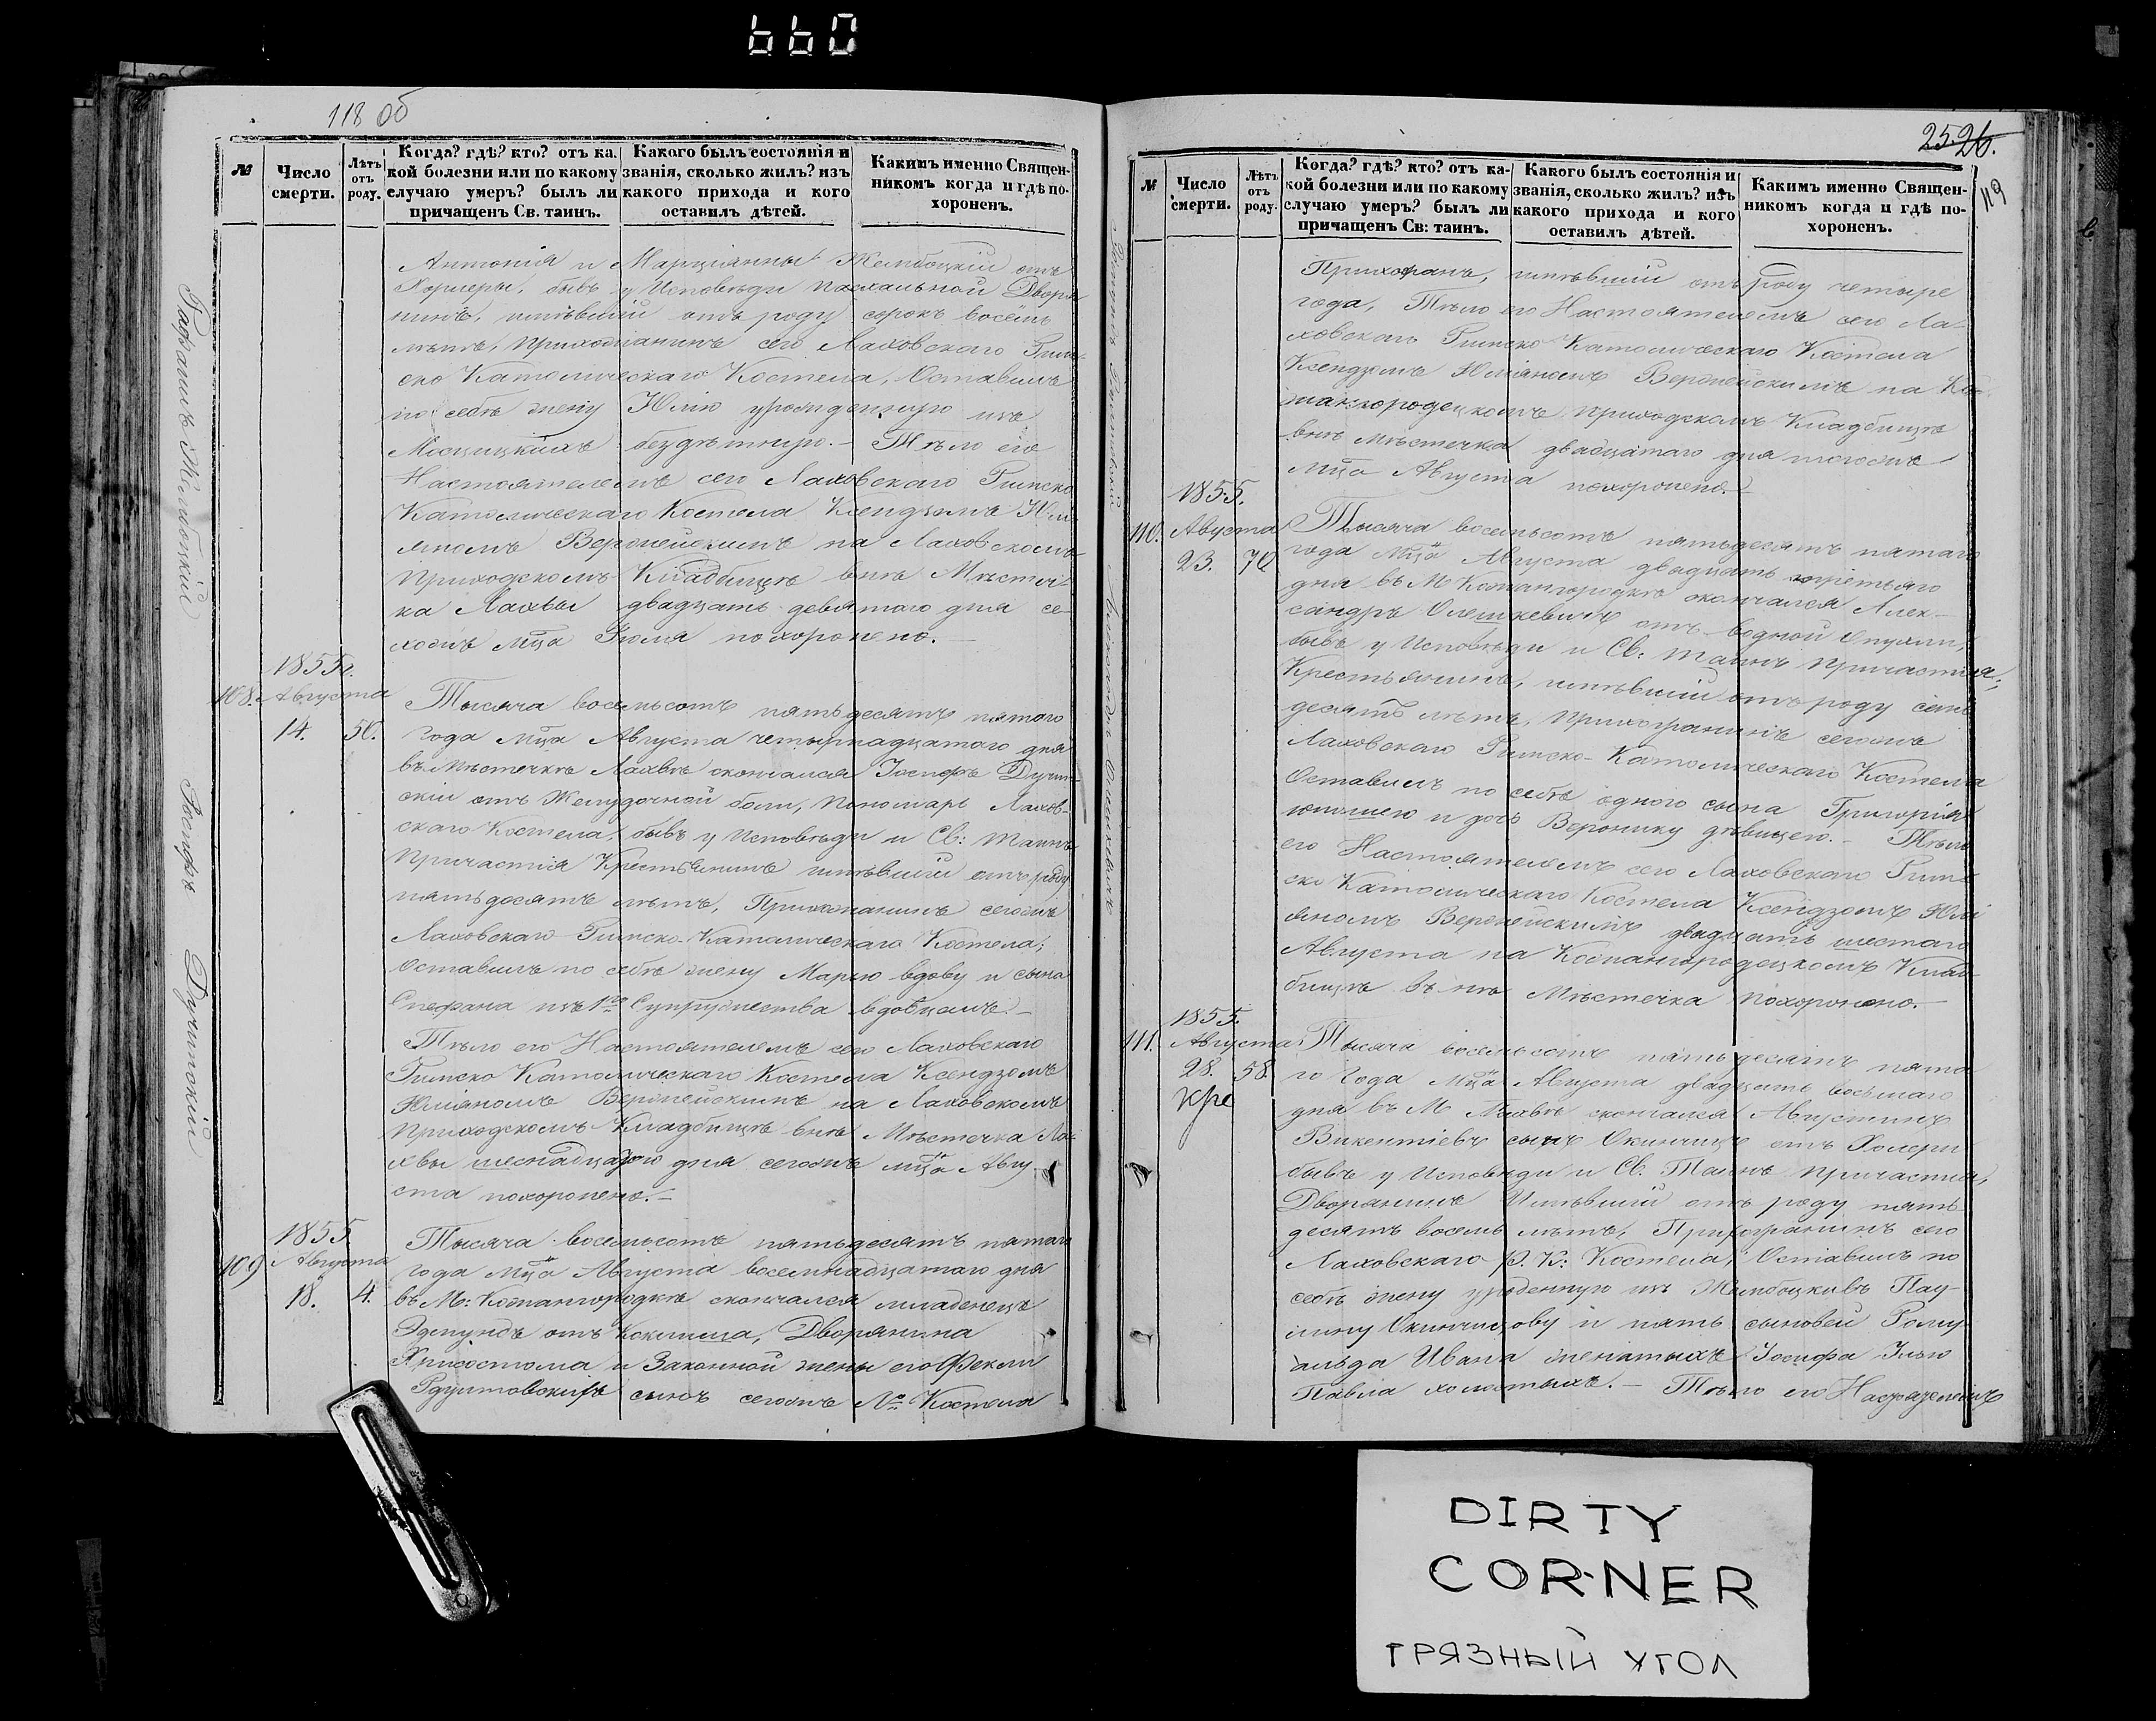 660
118 об
№
Число смерти.
Лѣтъ отъ роду.
Когда? гдѣ? кто? отъ ка-
кой болезни или по какому
случаю умеръ? былъ ли
причащенъ Св. таинъ.
Какого былъ состоянія и
званія, сколько жилъ? изъ
какого прихода и кого
оставилъ дѣтей.
Какимъ именно Священ-
никомъ когда и гдѣ по-
хороненъ.
Антонія и Марціянны Жембоцкій отъ
Холеры, бывъ у Исповѣди пасхальной Дворя
нинъ, имѣвшій отъ роду сорокъ восемь
лѣтъ, прихожанинъ сего Лаховскаго Рим-
ско Католическаго Костела, Оставилъ
по себѣ жену Юлію урожденную изъ
бездѣтную. — Тѣло его
Настоятелемъ сего Лаховскаго Римско
Католическаго Костела Ксендзомъ Юлі
яномъ Верпейскимъ на Лаховскомъ
Приходскомъ Кладбищѣ внѣ Мѣстеч-
ка Лахвы двадцать девятаго дня се-
гожъ Мца Іюля похоронено. —
Рафаилъ Жембоцкій
1855г.
108. Августа
14. 50.
Тысяча восемьсотъ пятьдесятъ пятого
года Мца Августа четырнадцатаго дня
въ Мѣстечкѣ Лахвѣ скончался Іосифъ Дучин-
скій отъ Желудочной боли, Пономарь Лахов-
скаго Костела, бывъ у Исповѣди и Св: Таинъ
Причастія Крестьянинъ имѣвшій отъ роду
пятьдесятъ лѣтъ, Прихожанинъ сегожъ
Лаховскаго Римско-Католическаго Костела;
Оставилъ по себѣ жену Марью вдову и сына
Стефана изъ 1го Супружества вдовцемъ. —
Тѣло его Настоятелемъ сего Лаховскаго
Римско Католическаго Костела Ксендзомъ
Юліяномъ Верпейскимъ на Лаховскомъ
Приходскомъ Кладбищѣ внѣ Мѣстечка Ла-
хвы шеснадцатого дня сегожъ мца Авгу-
ста похоронено. —
Іосифъ Дучинскій
1855
109 Августа
18. 4.
Тысяча восемьсотъ пятьдесятъ пятаго
года Мца Августа восемнадцатаго дня
въ М: Кожангородкѣ скончался младенецъ
Эдмундъ отъ Коклюша, Дворянина
Хризостома и Законной жены его Феклы
Рдултовскихъ сынъ сегожъ Л. Костела
25. 26.
119
№
Число смерти.
Лѣтъ отъ роду.
Когда? гдѣ? кто? отъ ка-
кой болезни или по какому
случаю умеръ? былъ ли
причащенъ Св: таин.
Какого былъ состоянія и
званія, сколько жилъ? изъ
какого прихода и кого
оставилъ дѣтей.
Какимъ именно Священ-
никомъ когда и гдѣ по-
хороненъ.
Прихожанъ, имѣвшій отъ роду четыре
года, Тѣло его Настоятелемъ сего Ла-
ховскаго Римско Католическаго Костела
Ксендзомъ Юліяномъ Верпейскимъ на Ко-
жангородецкомъ приходскомъ Кладбищѣ
внѣ мѣстечка двадцатаго дня тогожъ
Мца Августа похоронено. —
1855.
110. Августа
23. 70
Тысяча восемьсотъ пятьдесятъ пятаго
года Мца Августа двадцать третьяго
дня въ М Кожангородкѣ скончался Алек-
сандръ Олешкевичъ отъ водной Опухли,
бывъ у Исповѣди и Св: таинъ Причастія;
Крестьянинъ, имѣвшій отъ роду семь
десятъ лѣтъ, прихожанинъ сегожъ
Лаховскаго Римско-Католическаго Костела
Оставилъ по себѣ одного сына Григорія
юношею и дочь Веронику дѣвицею. — Тѣло
его Настоятелемъ сего Лаховскаго Рим-
ско Католическаго Костела Ксендзомъ Юлі
яномъ Верпейскимъ двадцать шестаго
Августа на Кожангородецкомъ Клад-
бищѣ внѣ Мѣстечка похоронено. —
1855.
111. Августа
28. 58.
Тысяча восемьсотъ пятьдесятъ пята
го Года Мца Августа двадцать восьмаго
дня въ М Лахвѣ скончался Августинъ
Викентіевъ сынъ Окинчицъ отъ Холеры
бывъ у Исповѣди и Св. Таинъ Причастія,
Дворянинъ Имѣвшій отъ роду пять
десятъ восемь лѣтъ, Прихожанинъ сего
Лаховскаго Р. К: Костела, Оставилъ по
себѣ жену урожденную изъ Жембоцкихъ Пау-
лину Окинчицову и пять сыновей Рому-
альда Ивана женатыхъ Іосифа Илью
Павла холостыхъ. — Тѣло его Настоятелемъ
DIRTY
CORNER
ГРЯЗНЫЙ УГОЛ